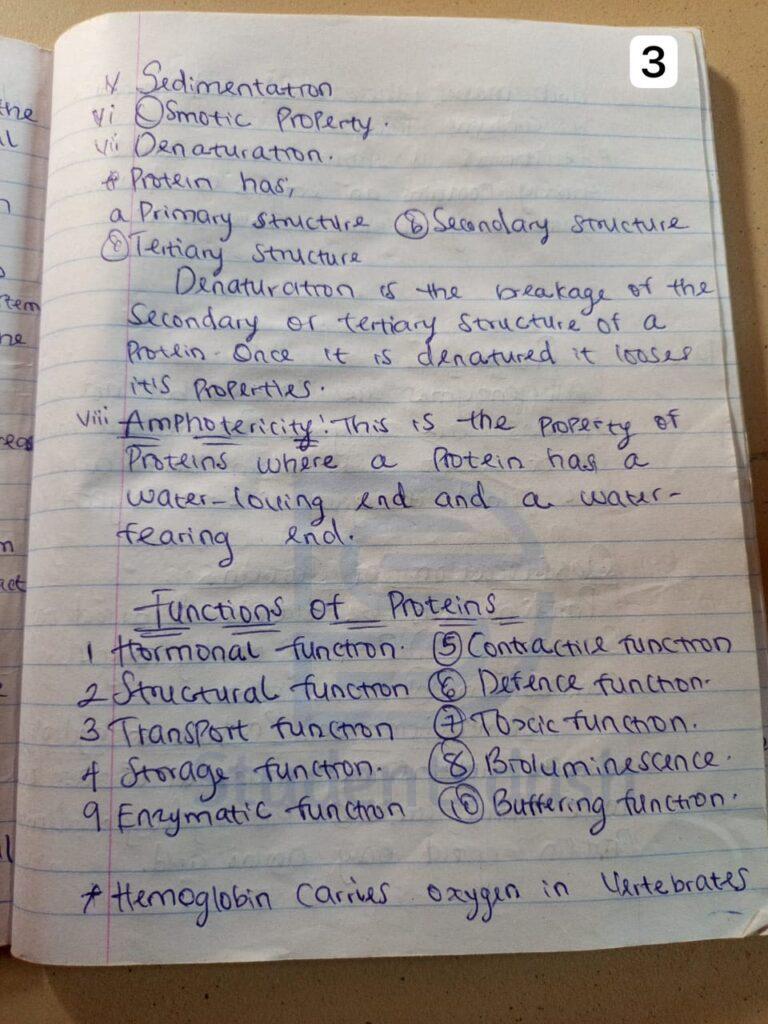 3
v Sedimentation
vi Osmotic Property.
vii Denaturation.
* Protein has;
a Primary structure ⓑ Secondary structure
ⓒ Tertiary structure
Denaturation is the breakage of the
Secondary or tertiary structure of a
Protein. Once it is denatured it looses
it's properties.
viii Amphotericity: This is the property of
Proteins where a Protein has a
water-loving end and a water-
fearing end.
Functions of Proteins
1 Hormonal function. ⑤ Contractile function
2 Structural function ⑥ Defence function.
3 Transport function ⑦ Toxic function.
4 Storage function. ⑧ Bioluminescence.
9 Enzymatic function ⑩ Buffering function.
* Hemoglobin carries oxygen in vertebrates
the